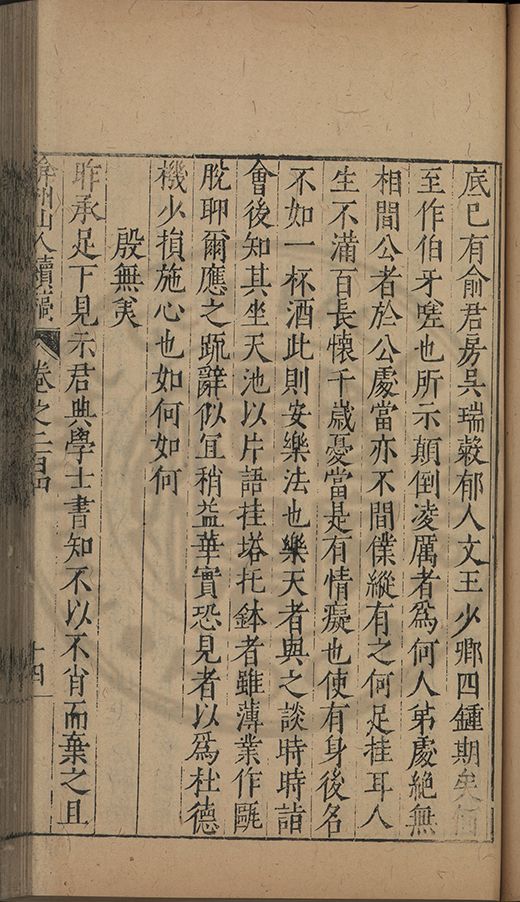 底已有俞君房吳瑞穀郁人文王少卿四鍾期矣
至作伯牙嗟也所示顛倒凌厲者為何人第處絕無
相間公者於公處當亦不間僕縱有之何足挂耳人
生不滿百長懷千歲憂當是有情癡也使有身後名
不如一杯酒此則安樂法也樂天者與之談時時詣
會後知其坐天池以片語挂塔托鉢者雖薄業作甌
脫聊爾應之䟽辭似宜稍益華實恐見者以為杜德
機少損施心也如何如何
殷無美
昨承足下見示君典學士書知不以不肖而棄之且
弇州山人續稿
卷之二百四
十四